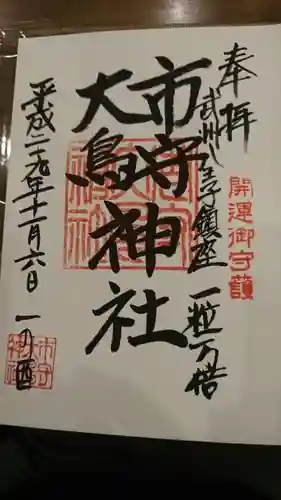 奉拝
開運御守護
武州八王子鎮座 一粒万倍
市守神社
大鳥神社
平成二十九年十一月六日 一の酉